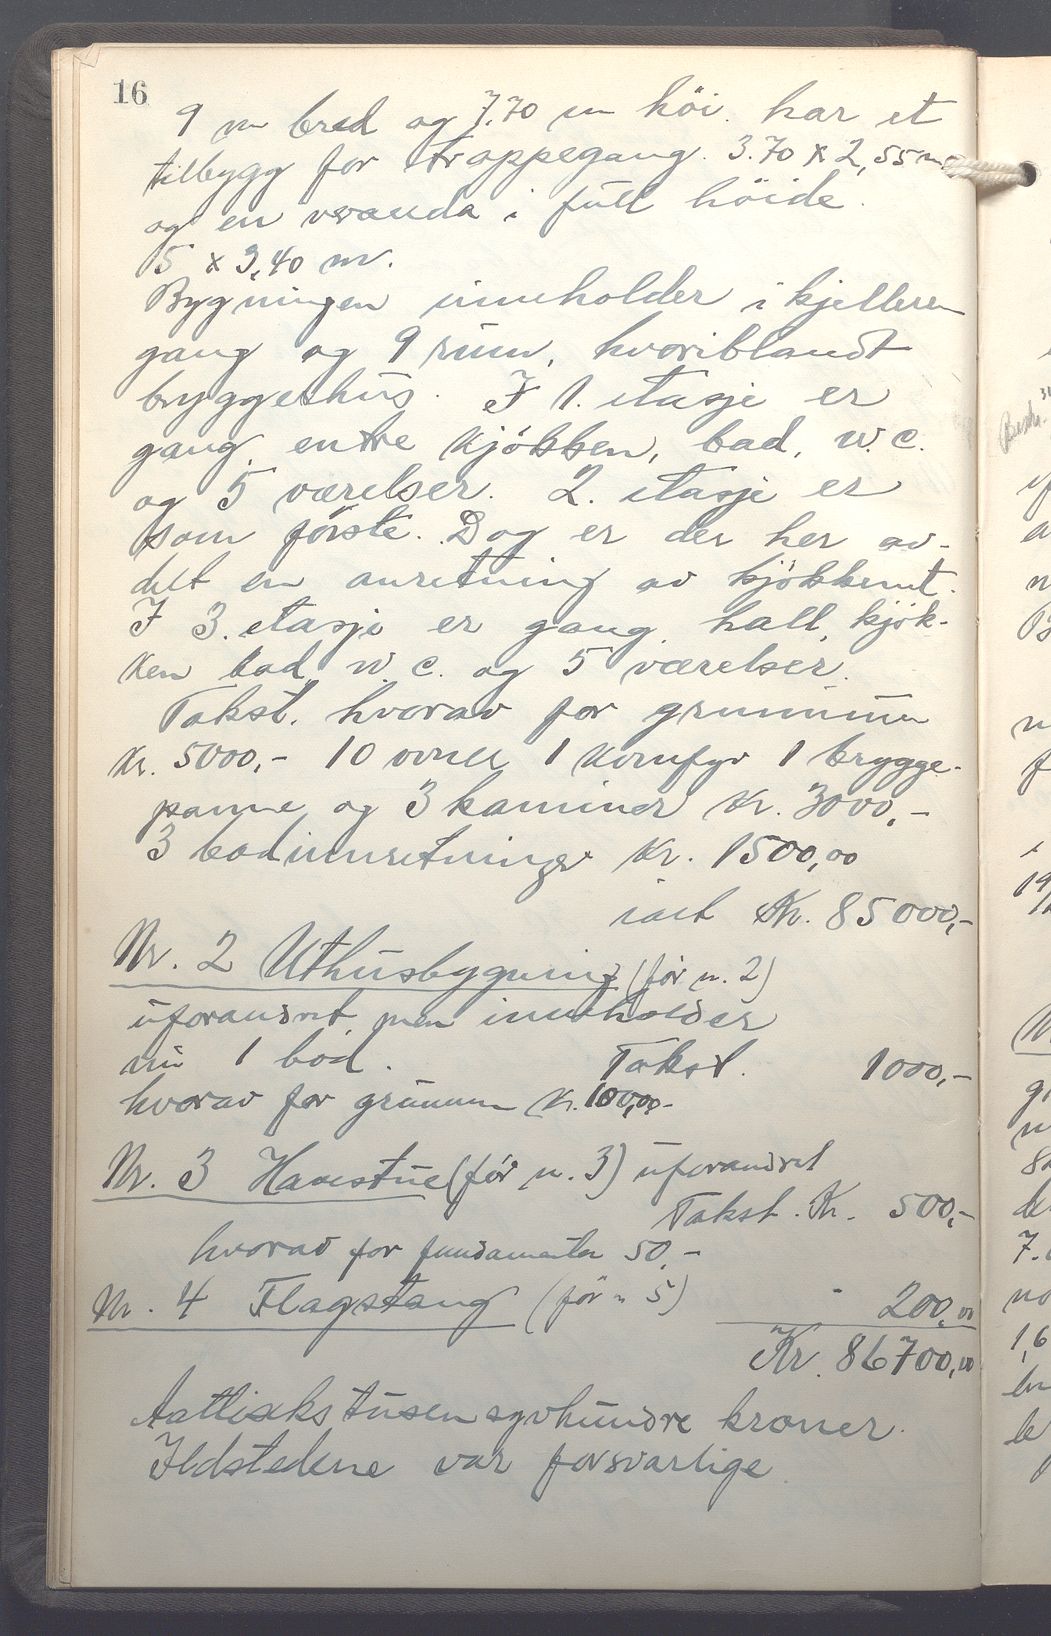 16
9 m bred og 7.70 m höi. har et
tilbygg for trappegang. 3.70 x 2,55 m
og en veranda i full höide.
5 x 3,40 m.
Bygningen inneholder i kjelleren
gang og 9 rum, hvoriblandt
bryggerhus. I 1. etasje er
gang, entre kjökken, bad, w.c.
og 5 værelser. 2. etasje er
som förste. Dog er der her av-
delt en anretning av kjökkenet.
I 3. etasje er gang, hall, kjök-
ken bad w.c. og 5 værelser.
Takst. hvorav for grunmuren
Kr. 5000,- 10 ovner 1 komfyr 1 brygge-
panne og 3 kaminer Kr. 3000,-
3 badinnretninger Kr. 1500,00
ialt Kr. 85000,-
Nr. 2 Uthusbygning (för n. 2)
uforandret, men inneholder
nu 1 bod. Takst. 1000,-
hvorav for grunmur Kr. 100,00-
Nr. 3 Havestue (för n. 3) uforandret
Takst. Kr. 500,-
hvorav for fundamenter 50,-
Nr. 4 Flagstang (för " 5) " 200,00
Kr. 86700,00
Aattiseks tusen syvhundre kroner.
Ildstedene var forsvarlige